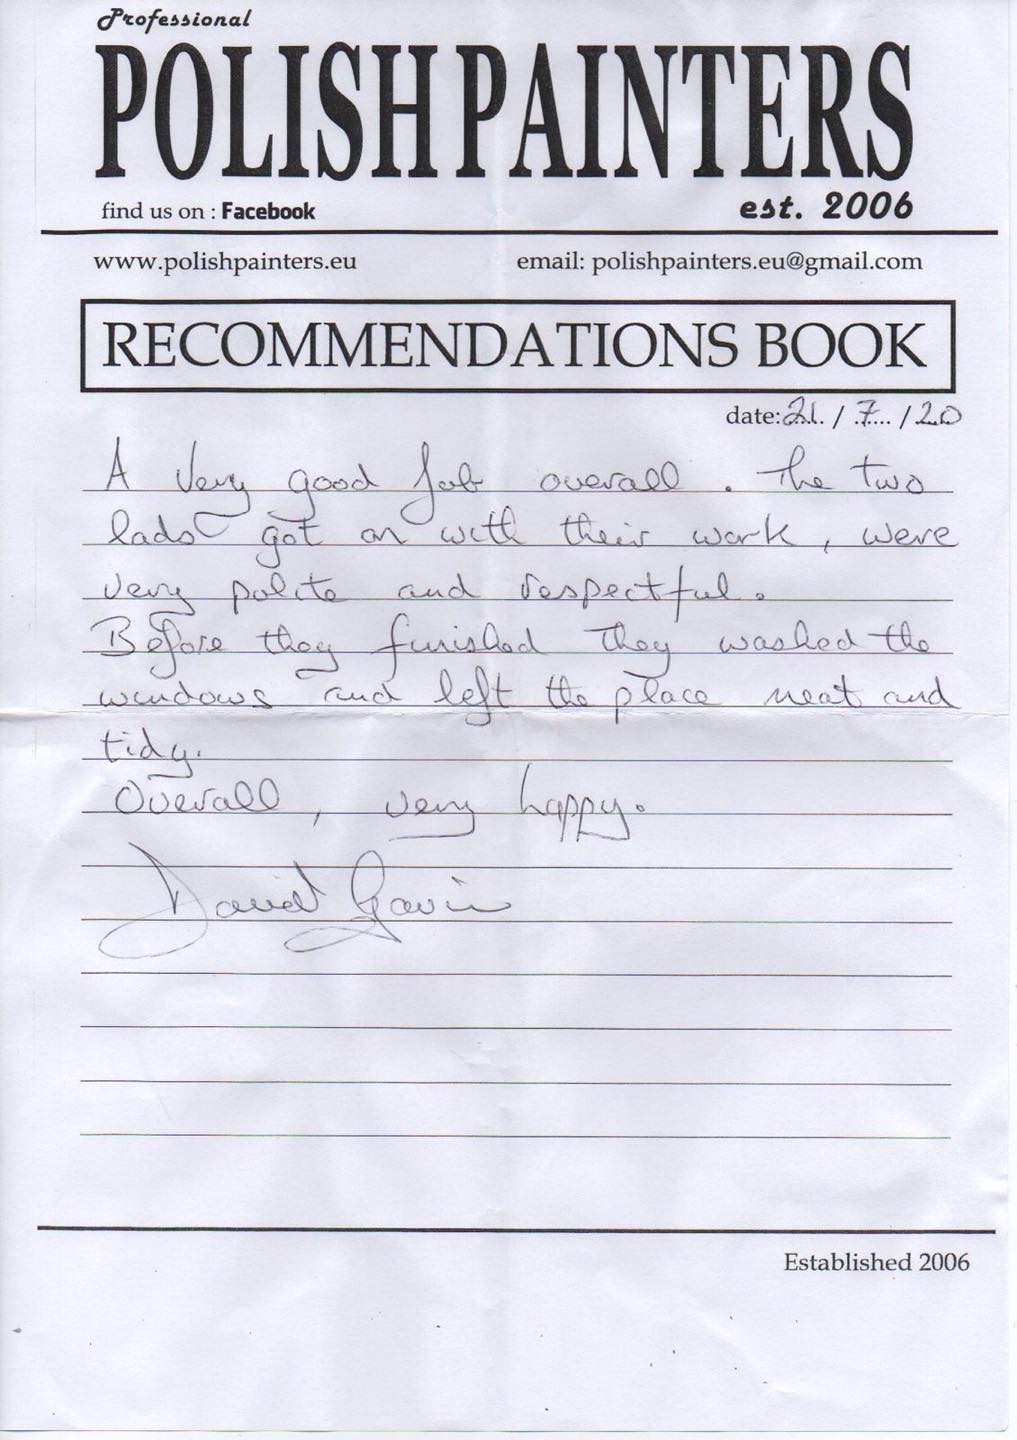 Professional
POLISH PAINTERS
find us on : Facebook est. 2006
www.polishpainters.eu email: polishpainters.eu@gmail.com
RECOMMENDATIONS BOOK
date: 21 / 7 / 20
A very good job overall. The two
lads got on with their work, were
very polite and respectful.
Before they finished they washed the
windows and left the place neat and
tidy.
Overall, very happy.
David Gavin
Established 2006